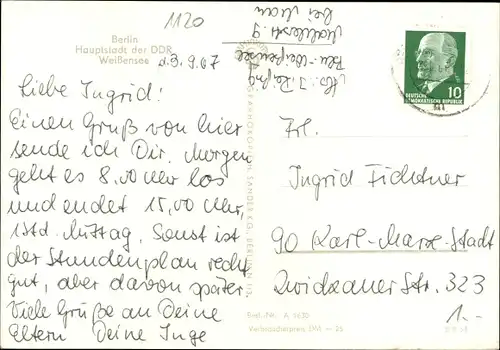 1120
Berlin
Hauptstadt der DDR
Weißensee
d. 3.9.67
Liebe Ingrid!
Einen Gruß von hier
sende ich Dir. Morgen
geht es 8.00 Uhr los
und endet 15.00 Uhr,
1 Std. Mittag. Sonst ist
der Stundenplan recht
gut, aber davon später.
Viele Grüße an Deine
Eltern Deine Inge
Bln-Weißensee
bei
DEUTSCHE
DEMOKRATISCHE REPUBLIK
10
Frl.
Ingrid Fichtner
90 Karl-Marx-Stadt
Zwickauer Str. 323
1.-
Best.-Nr. A 1630
Verbraucherpreis DM —.25